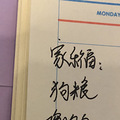 MONDAY
家乐福：
狗粮